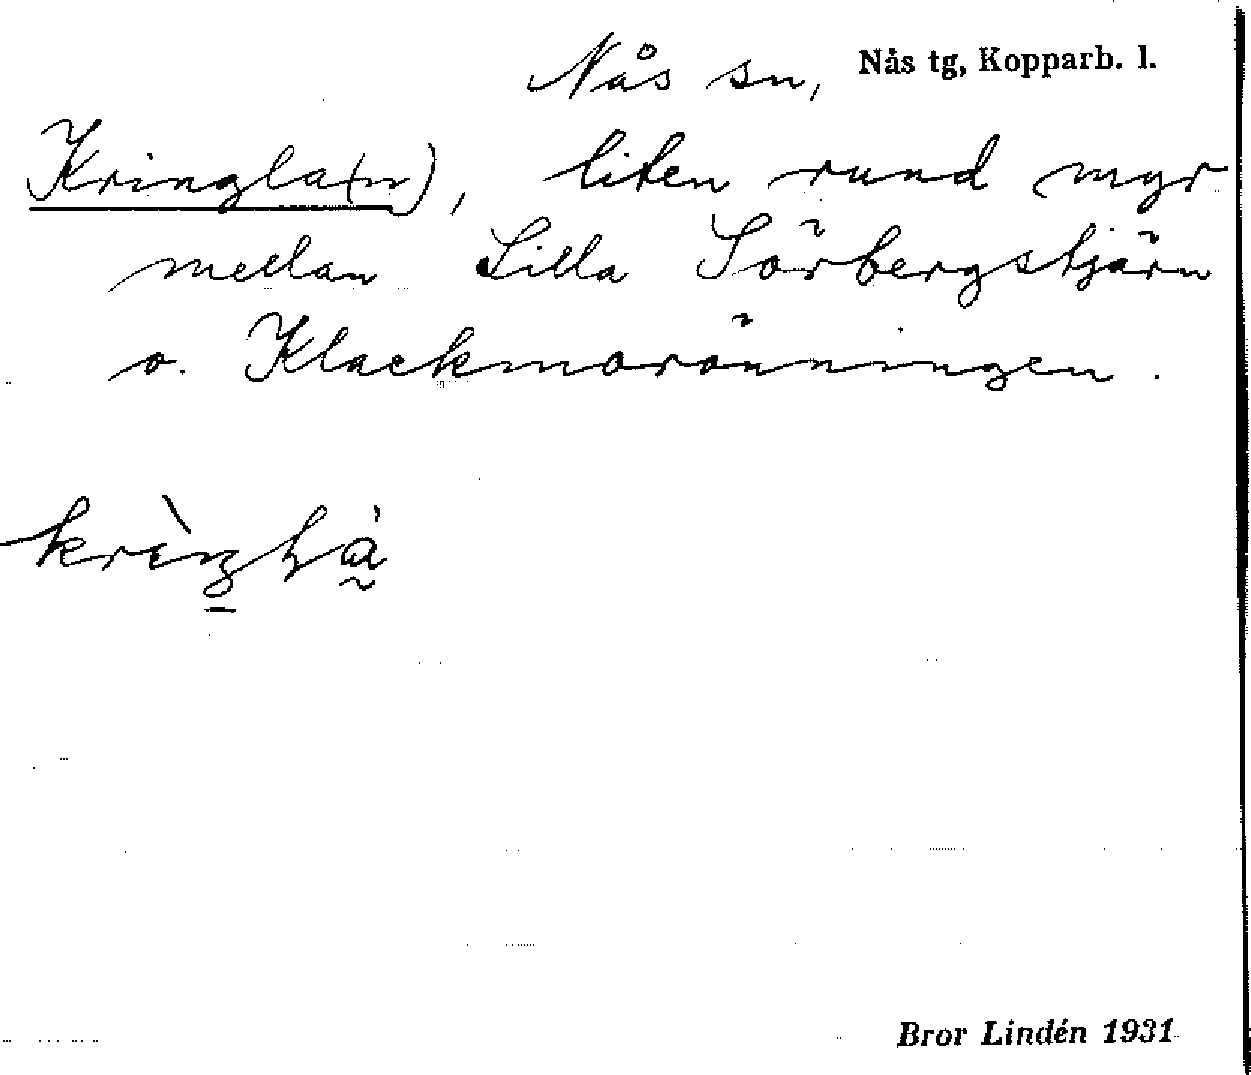 Nås sn, Nås tg, Kopparb. l.
Kringla(n), liten rund myr
mellan Lilla Sörbergstjärn
o. Klackmorönningen.
Bror Lindén 1931